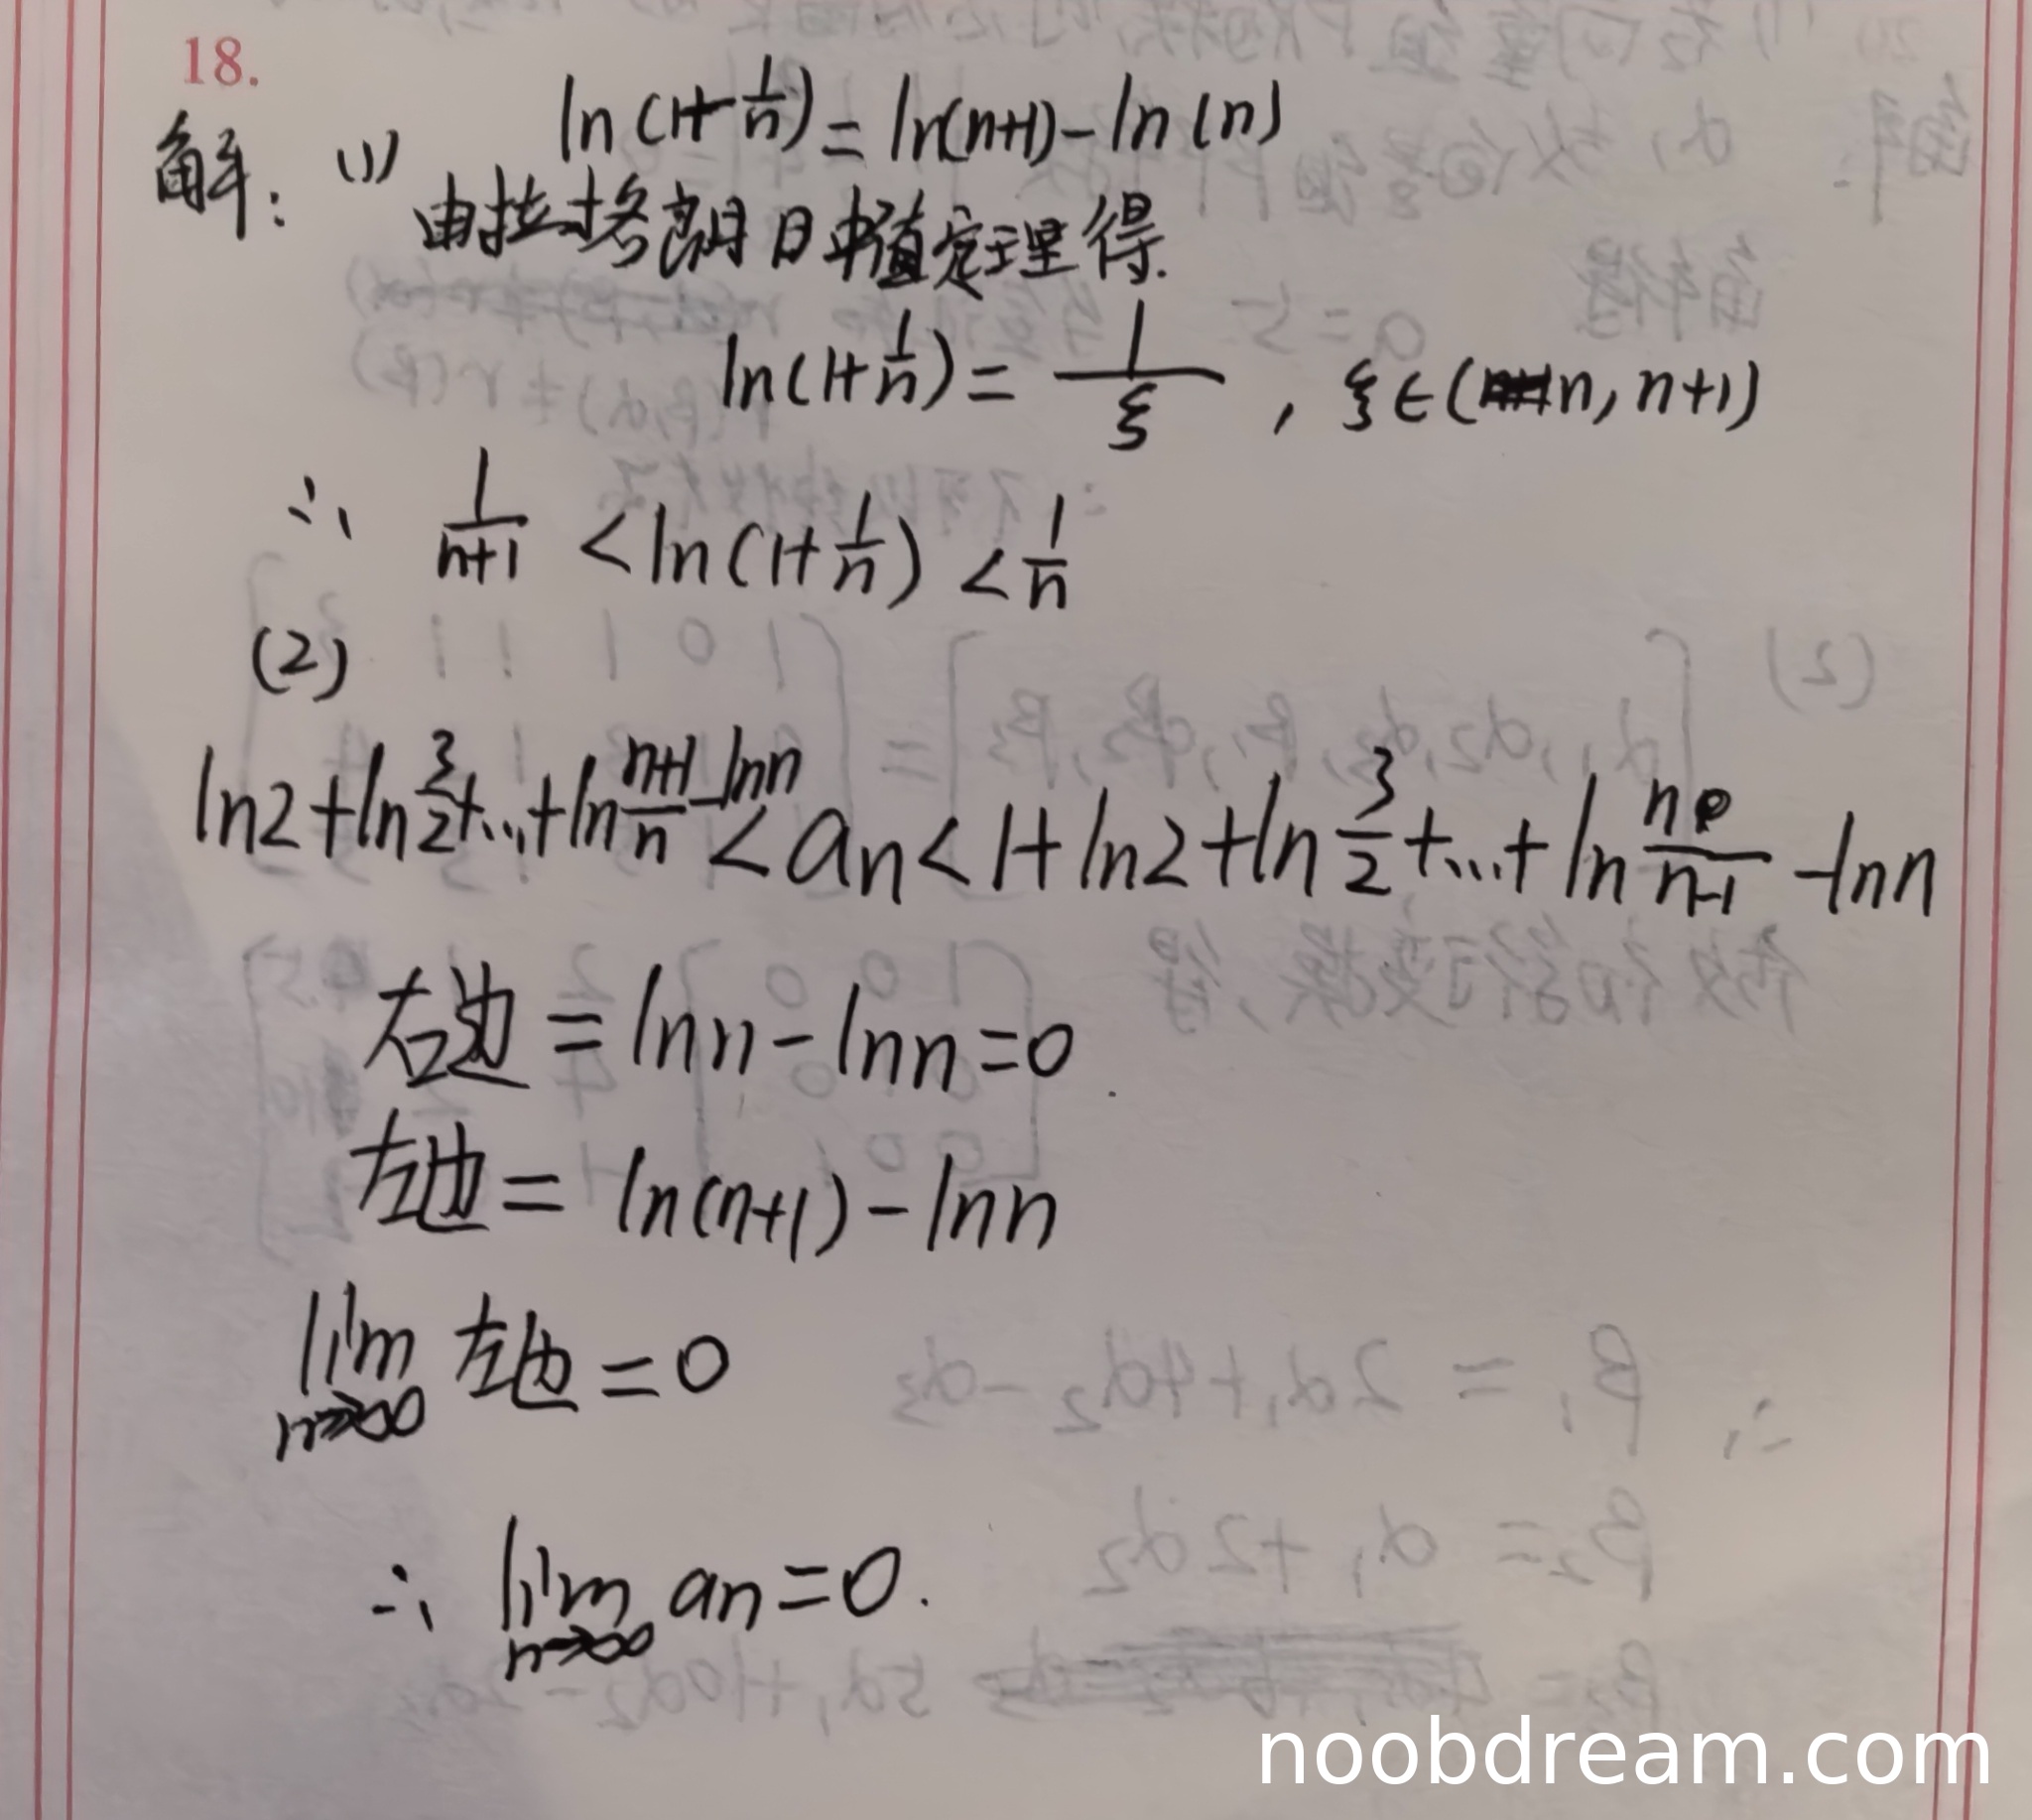 18.
解: (1) ln(1+1/n) = ln(n+1) - ln(n)
由拉格朗日中值定理得.
ln(1+1/n) = 1/ξ , ξ∈(n, n+1)
∴ 1/(n+1) < ln(1+1/n) < 1/n
(2)
ln2+ln3/2+...+ln(n+1)/n-lnn < an < 1+ln2+ln3/2+...+ln n/(n-1) -lnn
右边 = lnn - lnn = 0
左边 = ln(n+1) - lnn
lim n→∞ 左边 = 0
∴ lim n→∞ an = 0.
noobdream.com